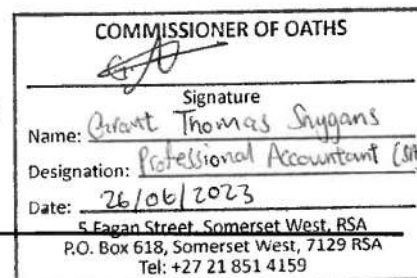 COMMISSIONER OF OATHS
Signature
Name: Grant Thomas
Designation: Professional Accountant
Date: 26/06/2023
5 Fagan Street, Somerset West, RSA
P.O. Box 618, Somerset West, 7129 RSA
Tel: +27 21 851 4159